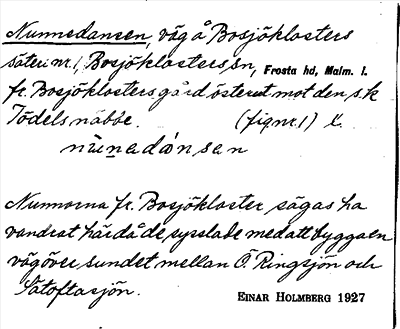 Nunnedansen, väg å Bosjöklosters
säteri nr 1, Bosjöklosters sn, Frosta hd, Malm. l.
fr. Bosjöklosters gård österut mot den s.k
Tödelsnäbbe. (fig nr 1) l.
nùnadánsen
Nunnorna fr. Bosjökloster sägas ha
vandrat här då de sysslade med att bygga en
väg över sundet mellan Ö. Ringsjön och
Sätoftasjön. EINAR HOLMBERG 1927